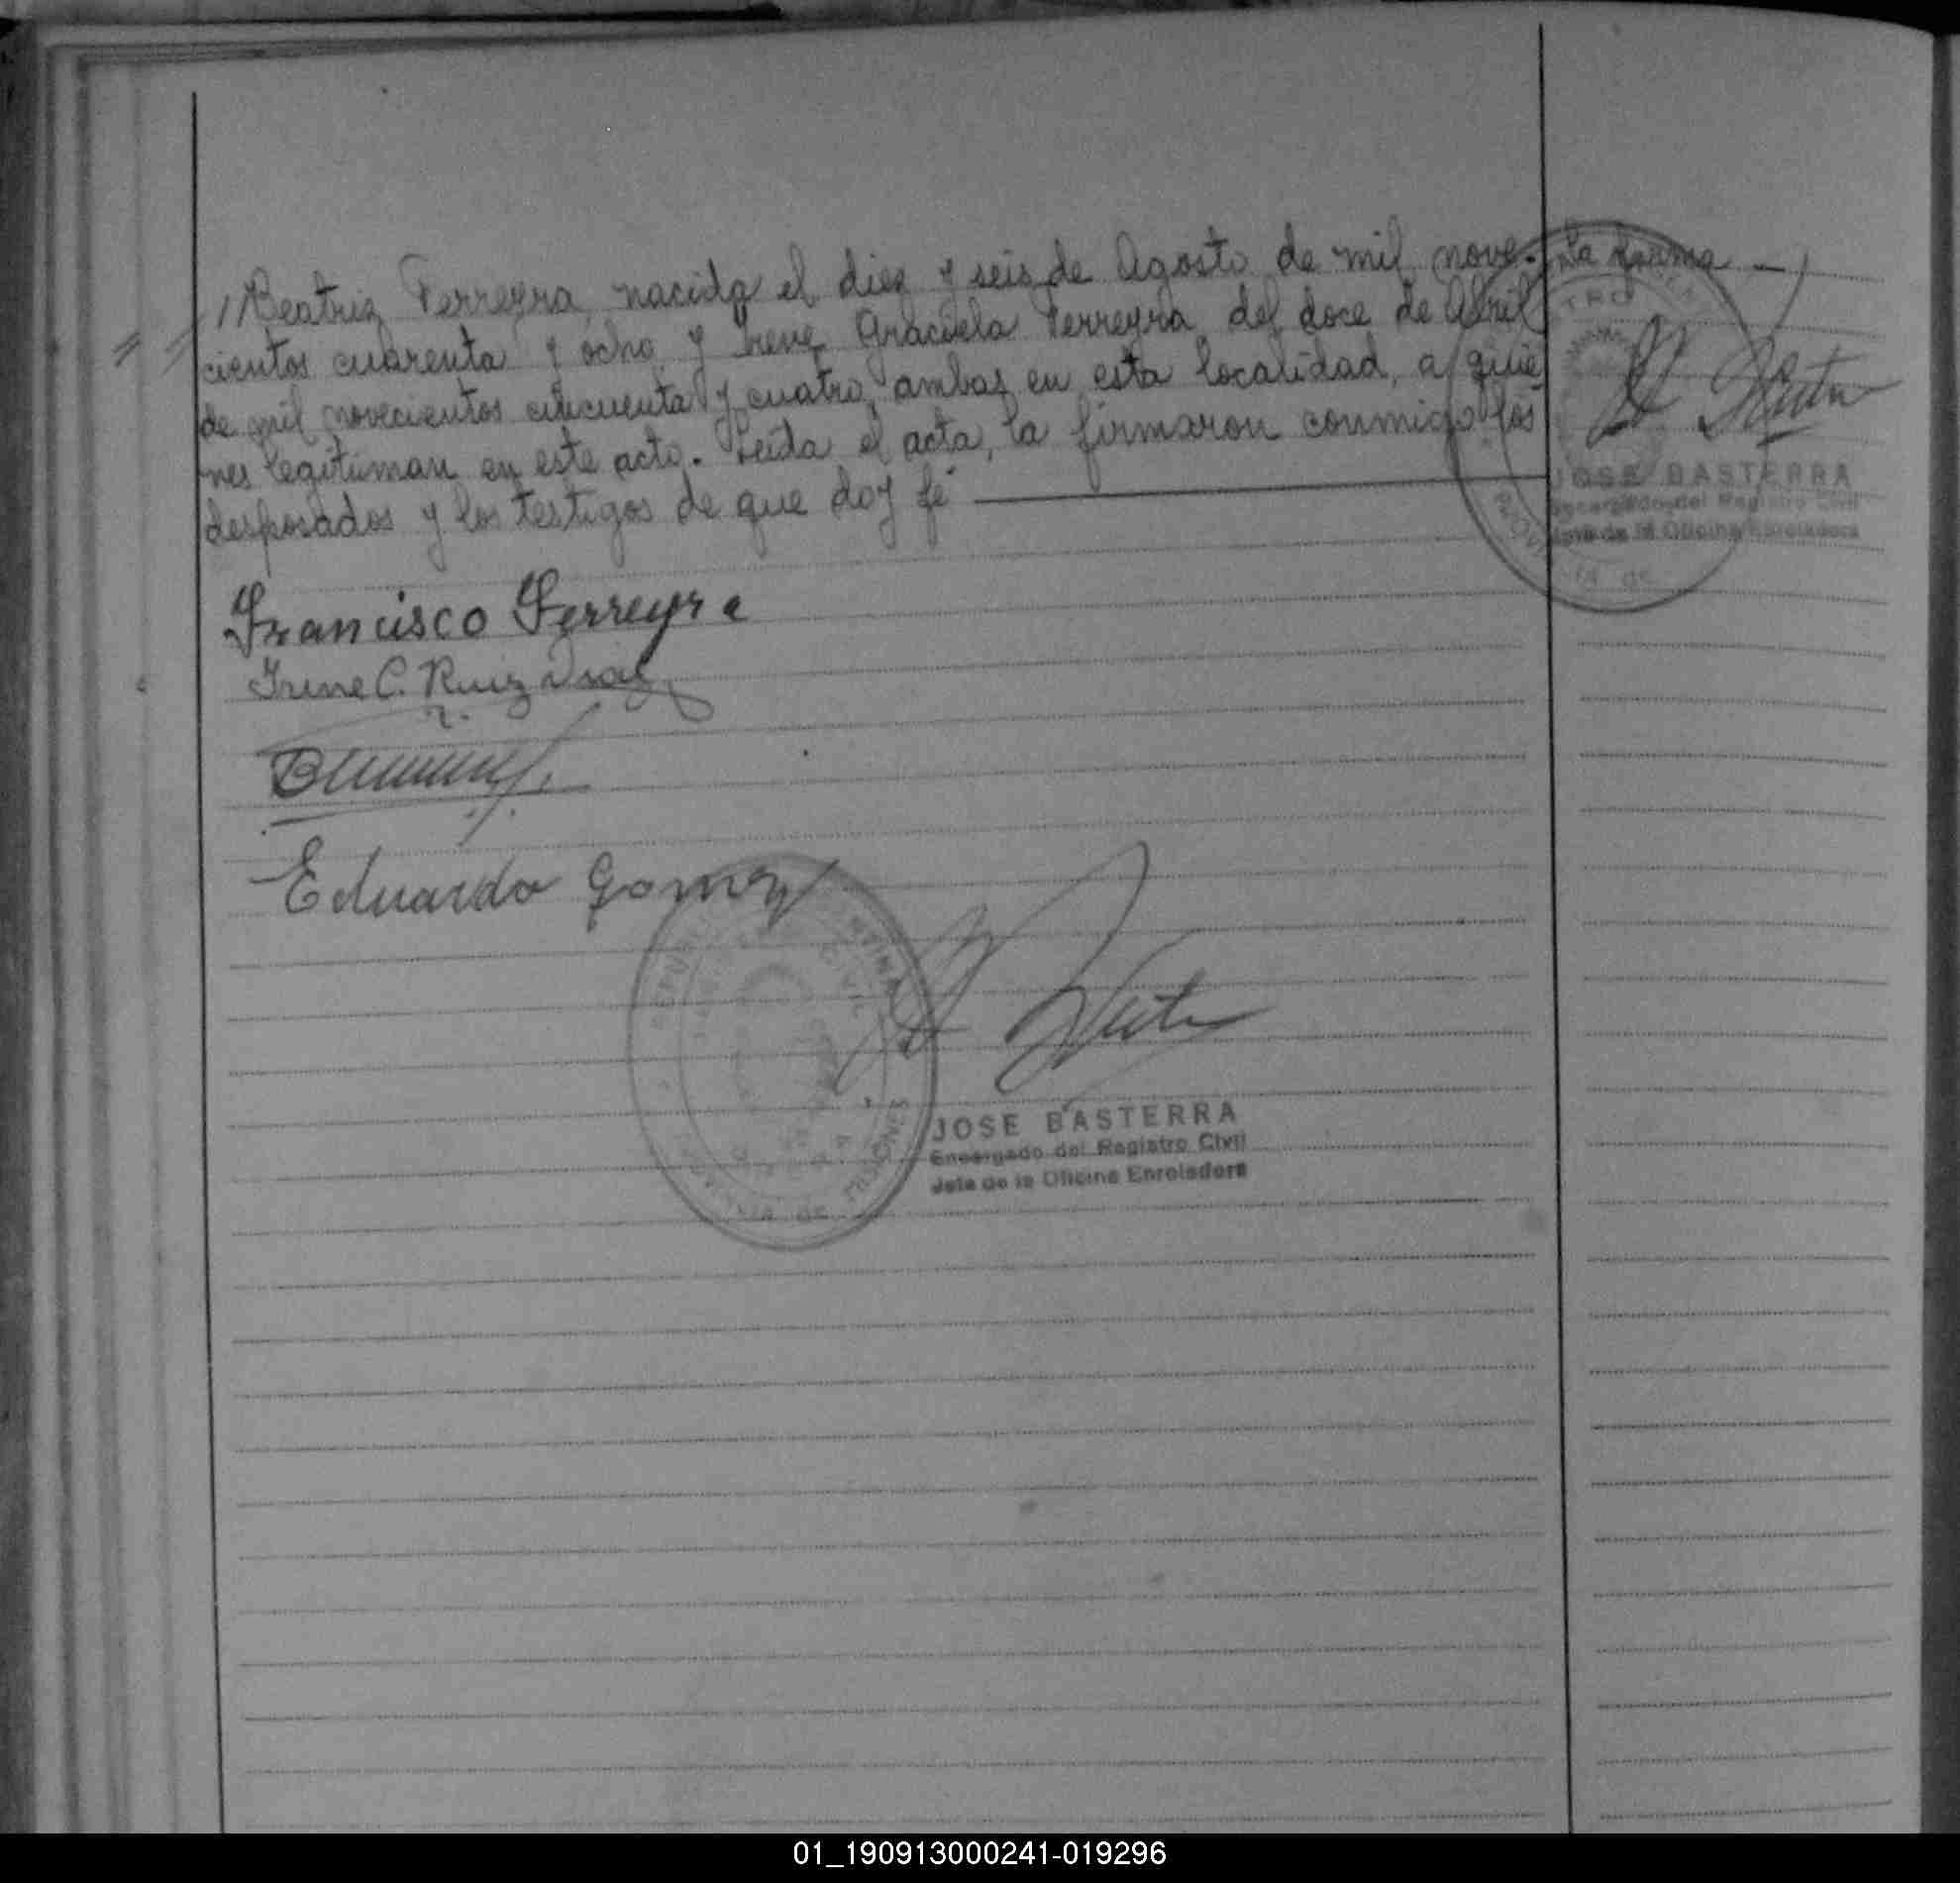 Beatriz Ferreyra, nacida el diez y seis de Agosto de mil nove-
cientos cuarenta y ocho y Irene Graciela Ferreyra del doce de Abril
de mil novecientos cincuenta y cuatro, ambas en esta localidad, a quie
nes legitiman en este acto. Leída el acta, la firmaron conmigo los
desposados y los testigos de que doy fé
Francisco Ferreyra
Irene C. Ruiz Diaz
Eduardo Gomez
CIVIL
JOSE BASTERRA
Encargado del Registro Civil
Jefe de la Oficina Enroladora
la forma
TRO
PROVINCIA DE
JOSE BASTERRA
Encargado del Registro Civil
Jefe de la Oficina Enroladora
01_190913000241-019296